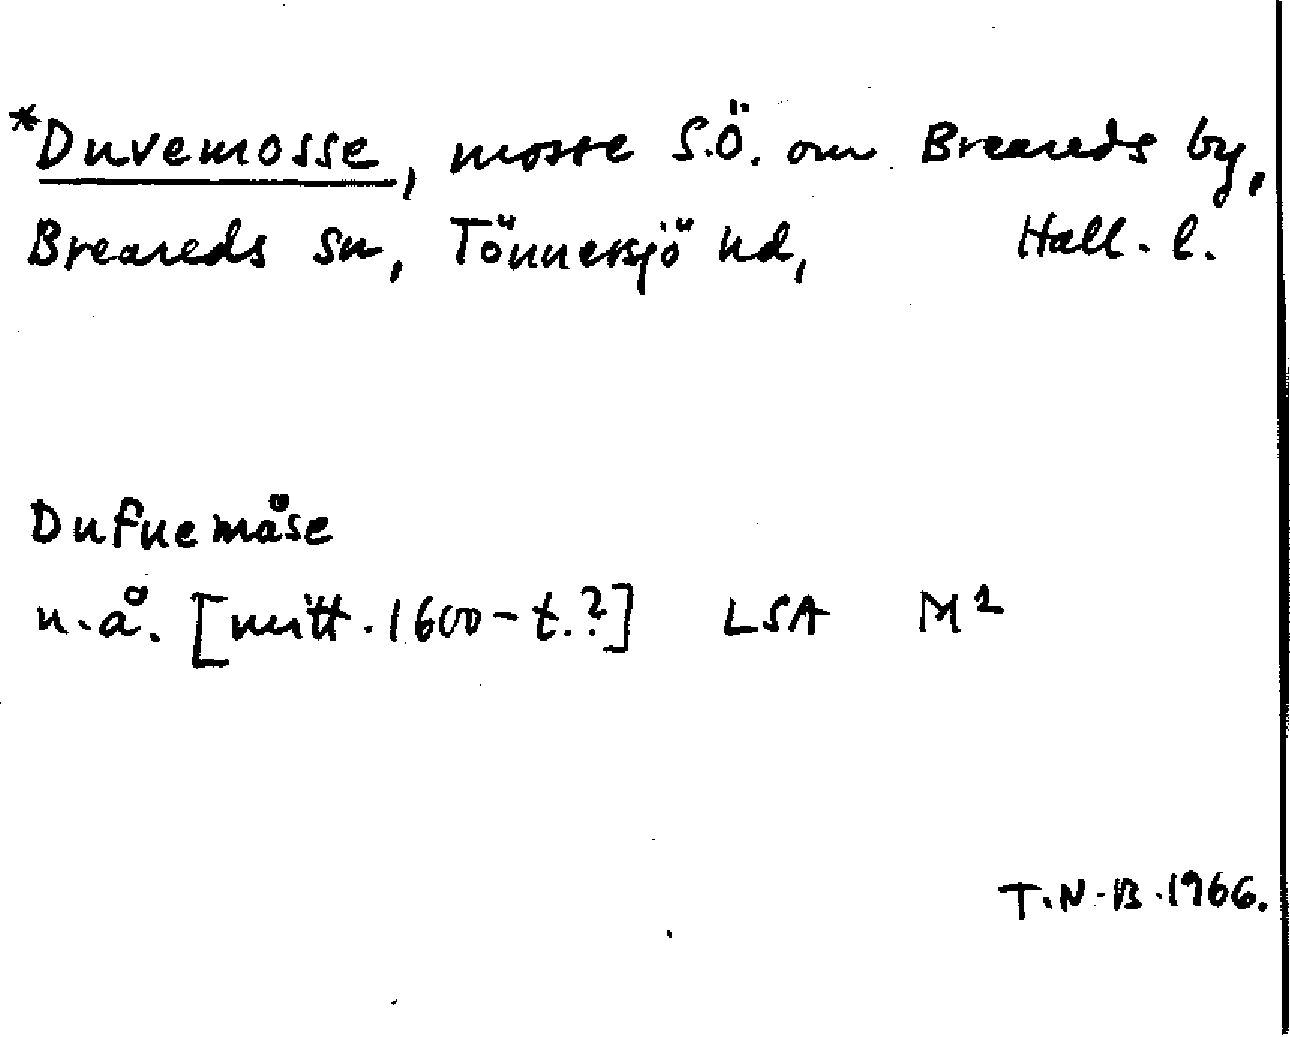 *Duvemosse, mosse S.Ö. om Breareds by,
Breareds sn, Tönnersjö hd, Hall. l.
Dufuemåse
u.å. [mitt. 1600-t.?] LSA M2
T.N-B. 1966.